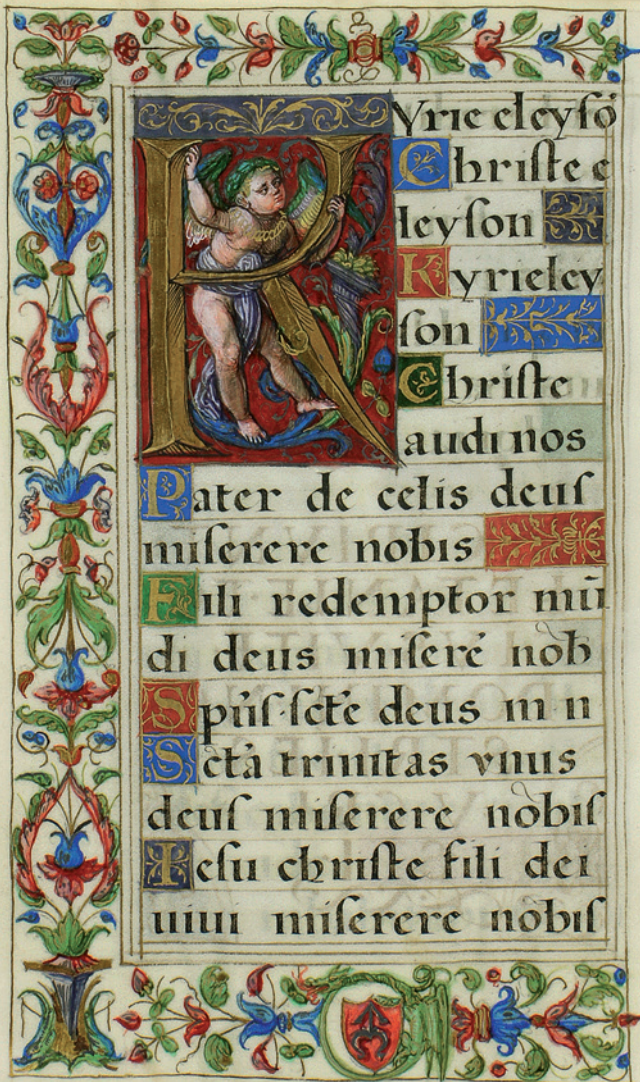 Kyrie eleysō
Christe e
leyson
Kyrieley
son
Christe
audi nos
Pater de celis deus
miserere nobis
Fili redemptor mū
di deus miseré nob̄
Sp̄us·sc̄te deus m n
Sc̄tā trinitas vnus
deus miserere nobis
Iesu christe fili dei
uiui miserere nobis